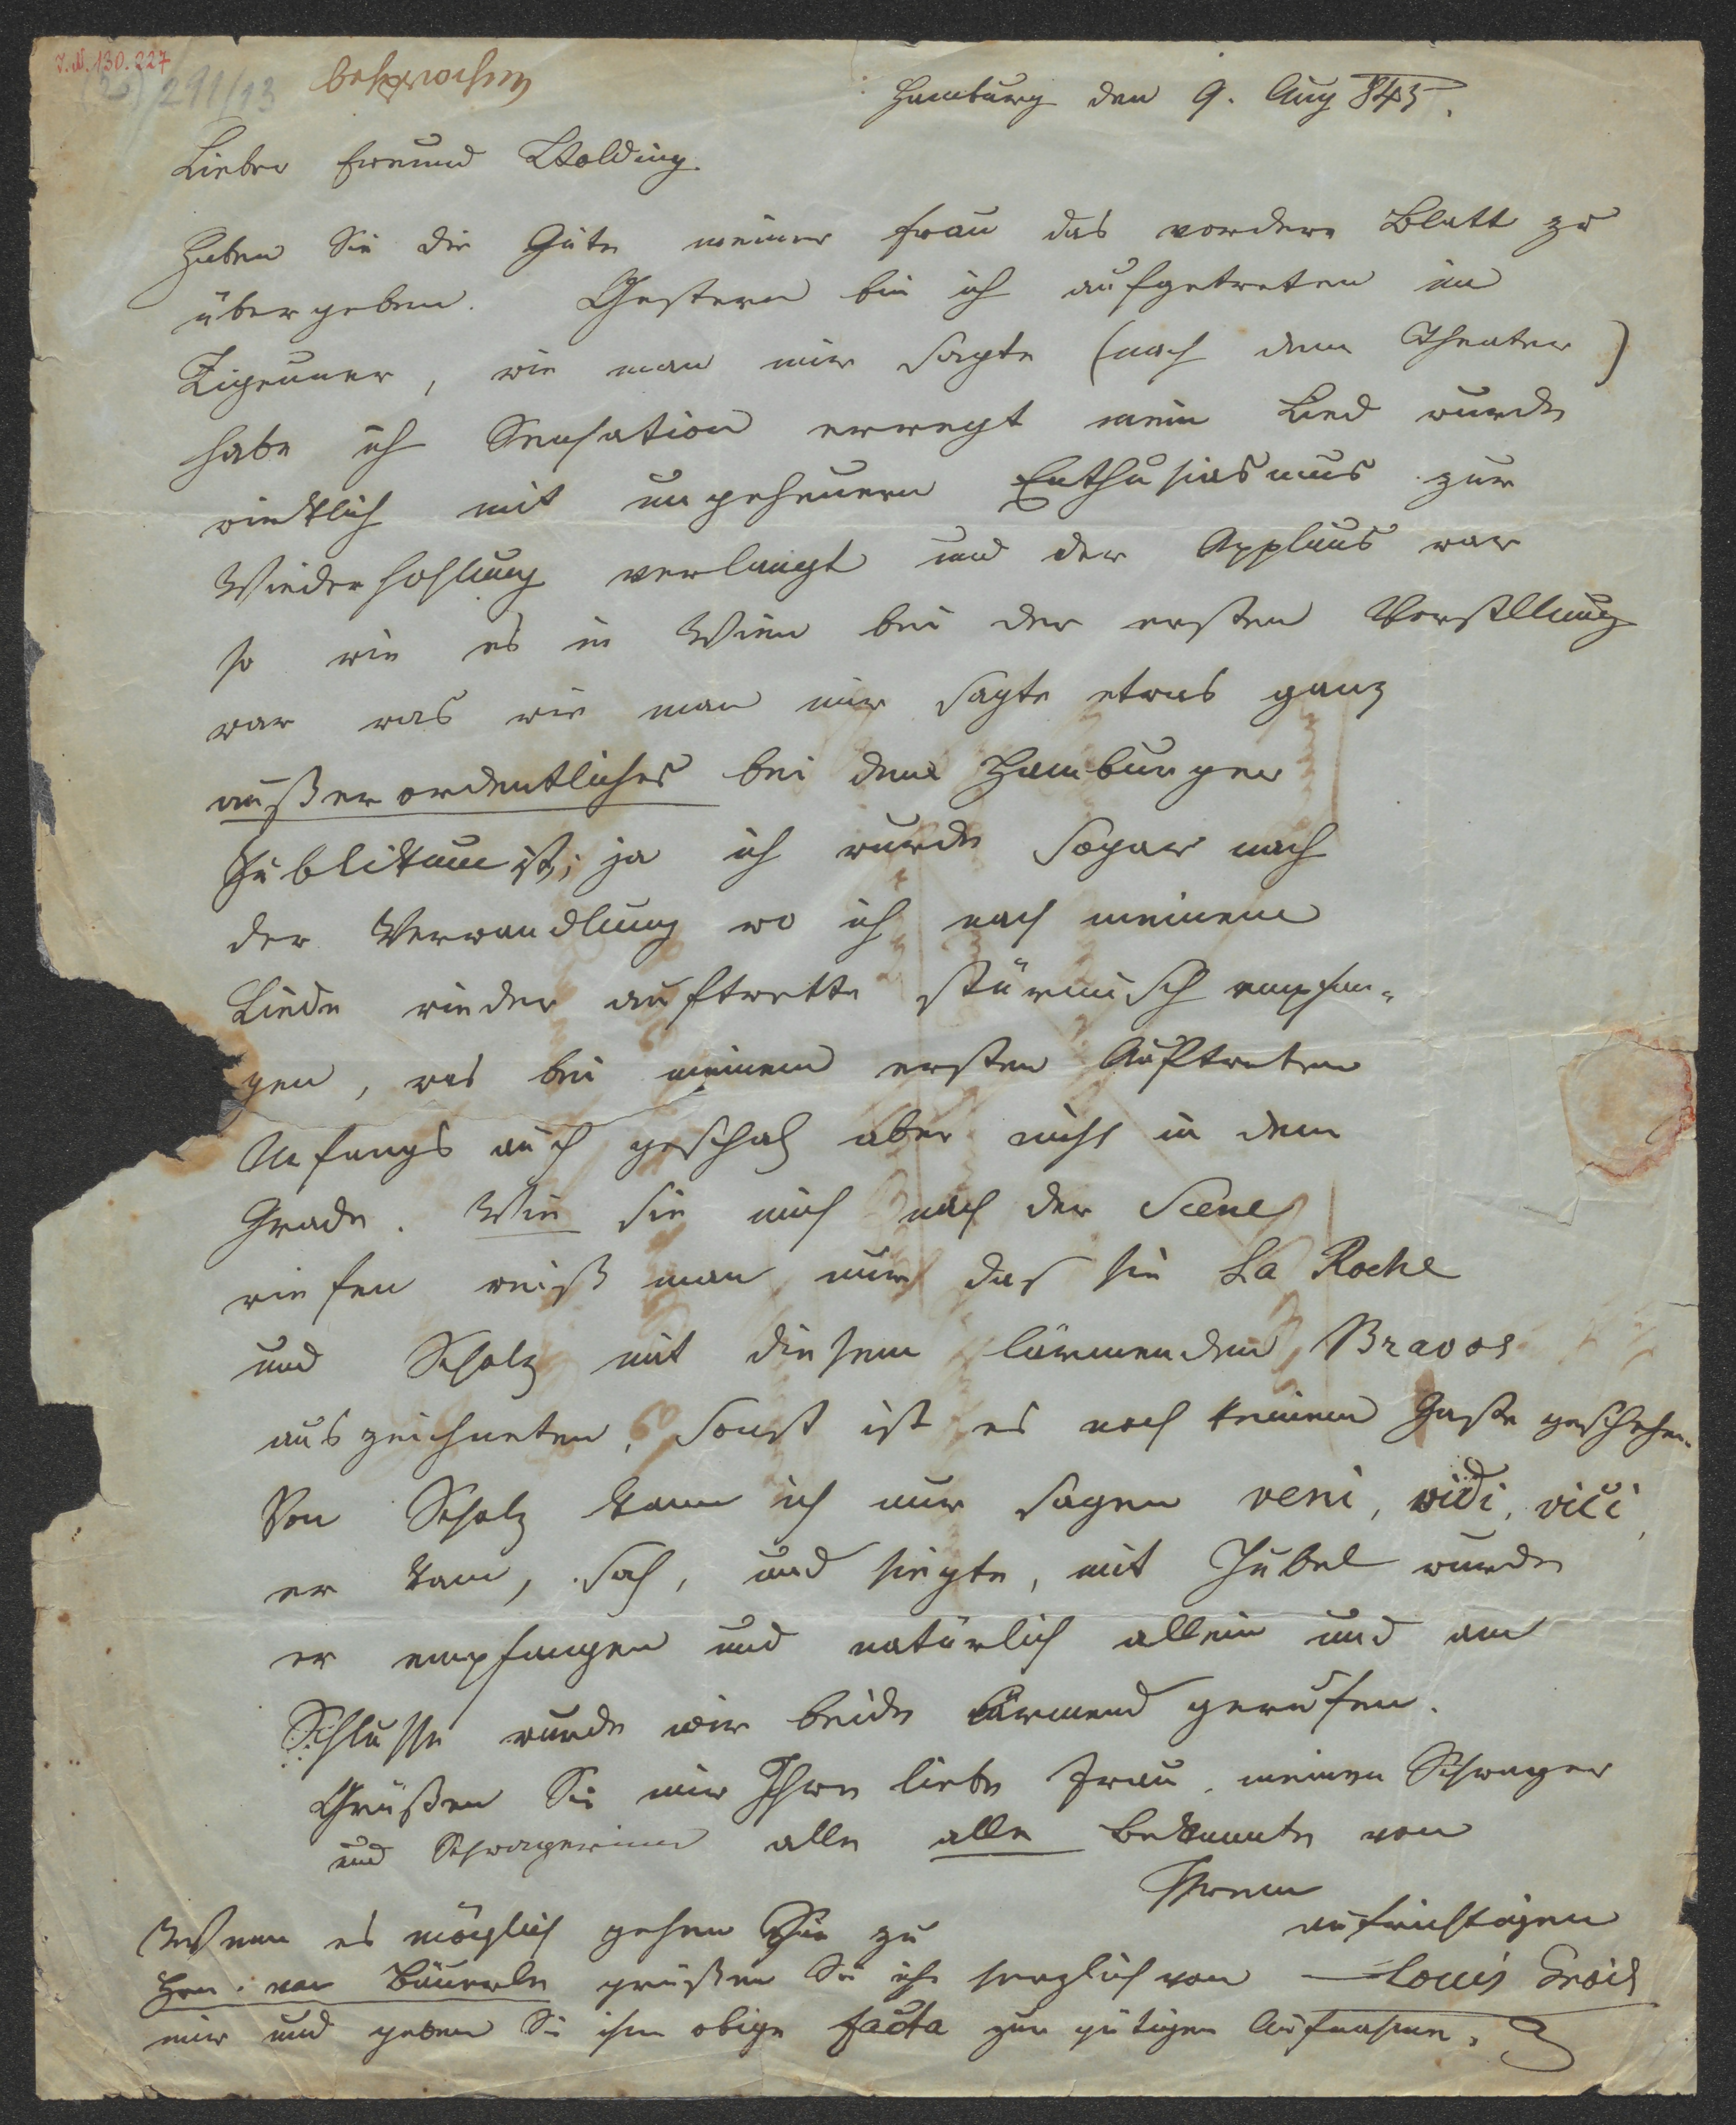 I.N. 130.227
291/13
besprochen
Hamburg den 9. Aug 845.
Lieber Freund Wolding.
Haben Sie die Güte meiner Frau das vordere Blatt zu
übergeben. Gestern bin ich aufgetreten im
Zigeuner, wie man mir sagte (nach dem Theater)
habe ich Sensation erregt mein Lied wurde
wirklich mit ungeheuern Enthusiasmus zur
Wiederhohlung verlangt und der Applaus war
so wie es in Wien bei der ersten Vorstllung
war was wie man mir sagte etwas ganz
außerordentliches bei dem Hamburger
Publikum ist; ja ich wurde sogar nach
der Verwandlung wo ich nach meinem
Liede wieder auftrette stürmisch empfan-
gen, was bei meinem ersten Auftreten
Anfangs auch geschah aber nicht in dem
Grade. Wie sie mich nach der Scene
riefen weiß man nur das sie La Roche
und Scholz mit diesem lärmenden Bravos
auszeichneten, sonst ist es noch keinem Gaste geschehen.
Von Scholz kann ich nur sagen veni, vidi, vici,
er kam, sah, und siegte, mit Jubel wurde
er empfangen und natürlich allein und am
Schlusse wurde wir beide lärmend gerufen.
Grüßen Sie mir Ihre liebe Frau, meinen Schwager
und Schwagerinn alle alle Bekannte von
Ihrem
aufrichtigen
Louis Grois
Wenn es möglich gehen Sie zu
Hrn. von Bäuerle grüßen Sie ihn herzlich von
mir und geben Sie ihm obige facta zur gütigen Aufnahme.